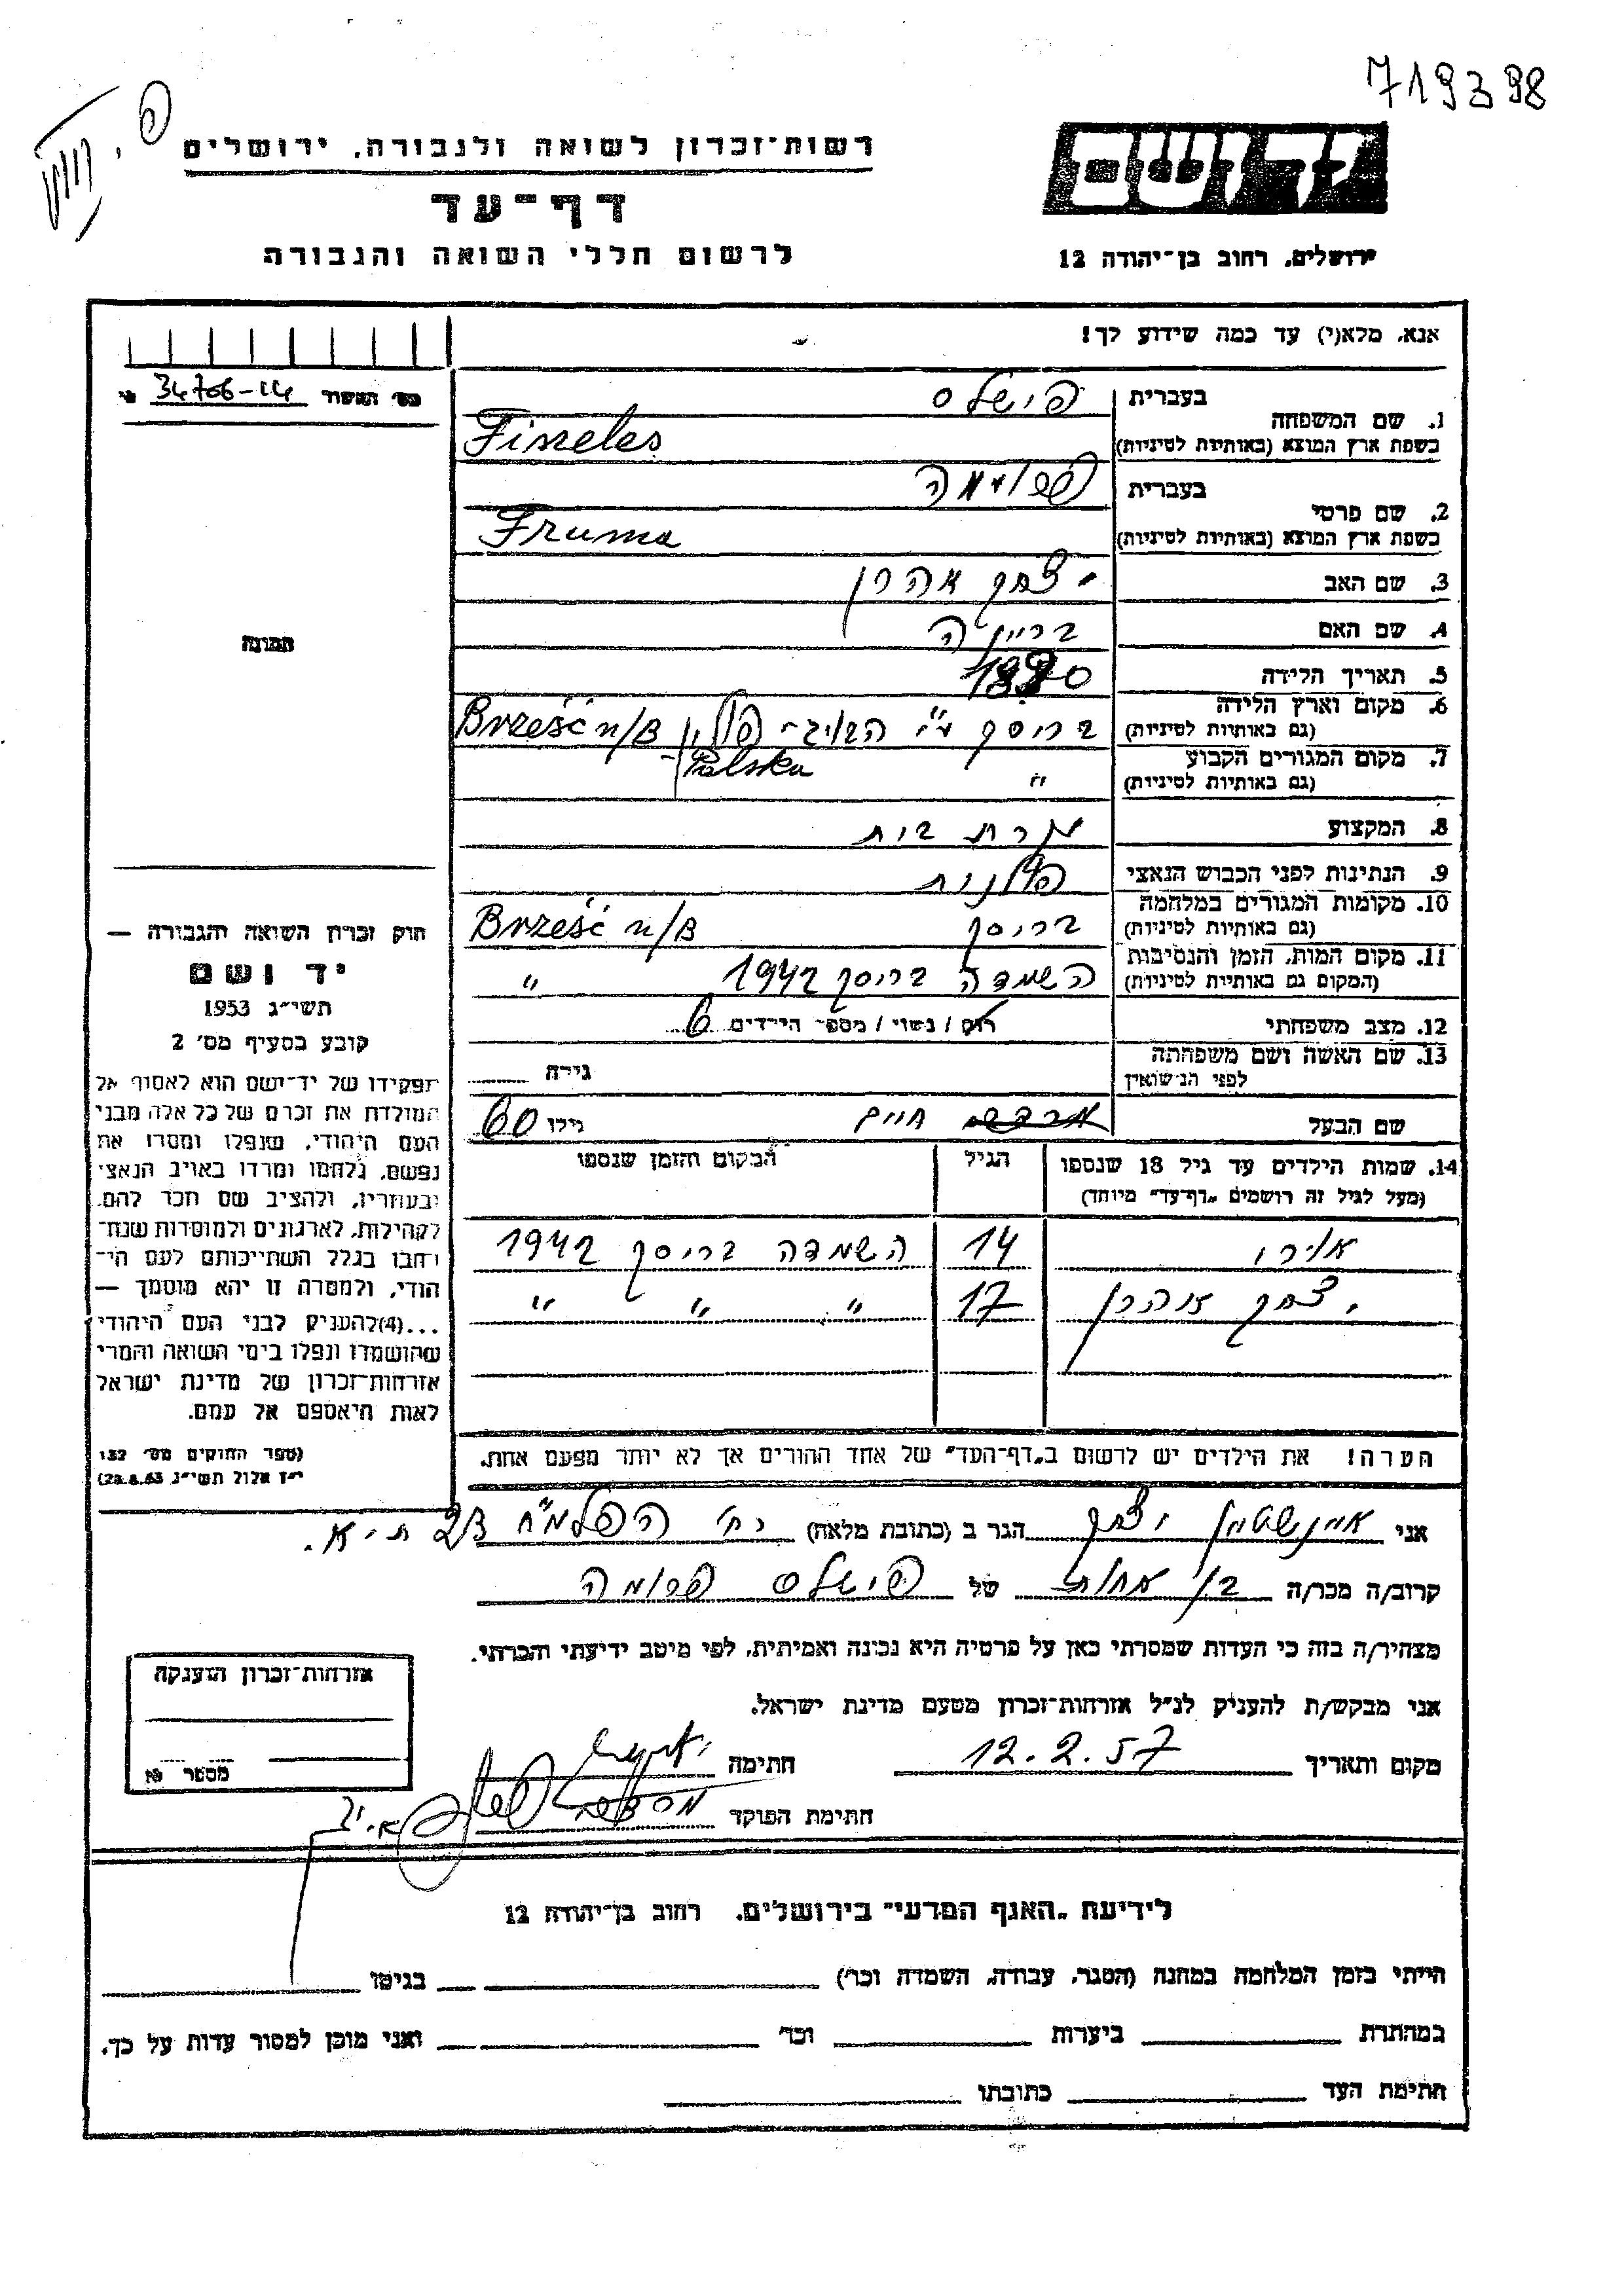 719398
רשות־זכרון לשואה ולגבורה, ירושלים
דף־עד
לרשום חללי השואה והגבורה
ירושלים, רחוב בן־יהודה 12
אנא, מלא(י) עד כמה שידוע לך!
34706-14
1. שם המשפחה
בעברית
פישלס
בשפת ארץ המוצא (באותיות לטיניות)
Fiszeles
2. שם פרטי
בעברית
פרומה
בשפת ארץ המוצא (באותיות לטיניות)
Fruma
3. שם האב יצחק אהרן
4. שם האם בריינה
5. תאריך הלידה
6. מקום וארץ הלידה
(גם באותיות לטיניות)
בריסק פולין Brześć n/B
Polska
7. מקום המגורים הקבוע
(גם באותיות לטיניות)
"
8. המקצוע עקרת בית
9. הנתינות לפני הכבוש הנאצי פולנית
10. מקומות המגורים במלחמה
(גם באותיות לטיניות)
בריסק Brześć n/B
11. מקום המות, הזמן והנסיבות
(המקום גם באותיות לטיניות)
השמדה בריסק 1942 "
12. מצב משפחתי רווק / נשוי / מספר הילדים 6
13. שם האשה ושם משפחתה
לפני הנישואין
גילה
שם הבעל חיים גילו 60
14. שמות הילדים עד גיל 18 שנספו
(מעל לגיל זה רושמים "דף־עד" מיוחד)
הגיל
המקום והזמן שנספו
14 השמדה בריסק 1942
יצחק אהרן 17 " " " "
הערה! את הילדים יש לרשום ב"דף־העד" של אחד ההורים אך לא יותר מפעם אחת.
תמונה
חוק זכרון השואה והגבורה —
יד ושם
תשי״ג 1953
קובע בסעיף מס׳ 2
תפקידו של יד־ושם הוא לאסוף אל
המולדת את זכרם של כל אלה מבני
העם היהודי, שנפלו ומסרו את
נפשם, נלחמו ומרדו באויב הנאצי
ובעוזריו, ולהציב שם וזכר להם,
לקהילות, לארגונים ולמוסדות שנח־
רבו בגלל השתייכותם לעם הי־
הודי, ולמטרה זו יהא מוסמך —
...(4) להעניק לבני העם היהודי
שהושמדו ונפלו בימי השואה והמרי
אזרחות־זכרון של מדינת ישראל
לאות היאספם אל עמם.
(ספר החוקים מס׳ 132
י״ז אלול תשי״ג 28.8.53)
אני איינשטיין יצחק הגר ב (כתובת מלאה) רח׳ הפלמ״ח ת־א.
קרוב/ה מכר/ה בן אחות של פישלס פרומה
מצהיר/ה בזה כי העדות שמסרתי כאן על פרטיה היא נכונה ואמיתית, לפי מיטב ידיעתי והכרתי.
אני מבקש/ת להעניק לנ״ל אזרחות־זכרון מטעם מדינת ישראל.
מקום ותאריך 12.2.57 חתימה
חתימת הפוקד
אזרחות־זכרון הוענקה
מספר
לידיעת "האגף המדעי" בירושלים, רחוב בן־יהודה 12
הייתי בזמן המלחמה במחנה (הסגר, עבודה, השמדה וכו׳) בגיטו
במחתרת ביערות וכו׳ ואני מוכן למסור עדות על כך.
חתימת העד כתובתו